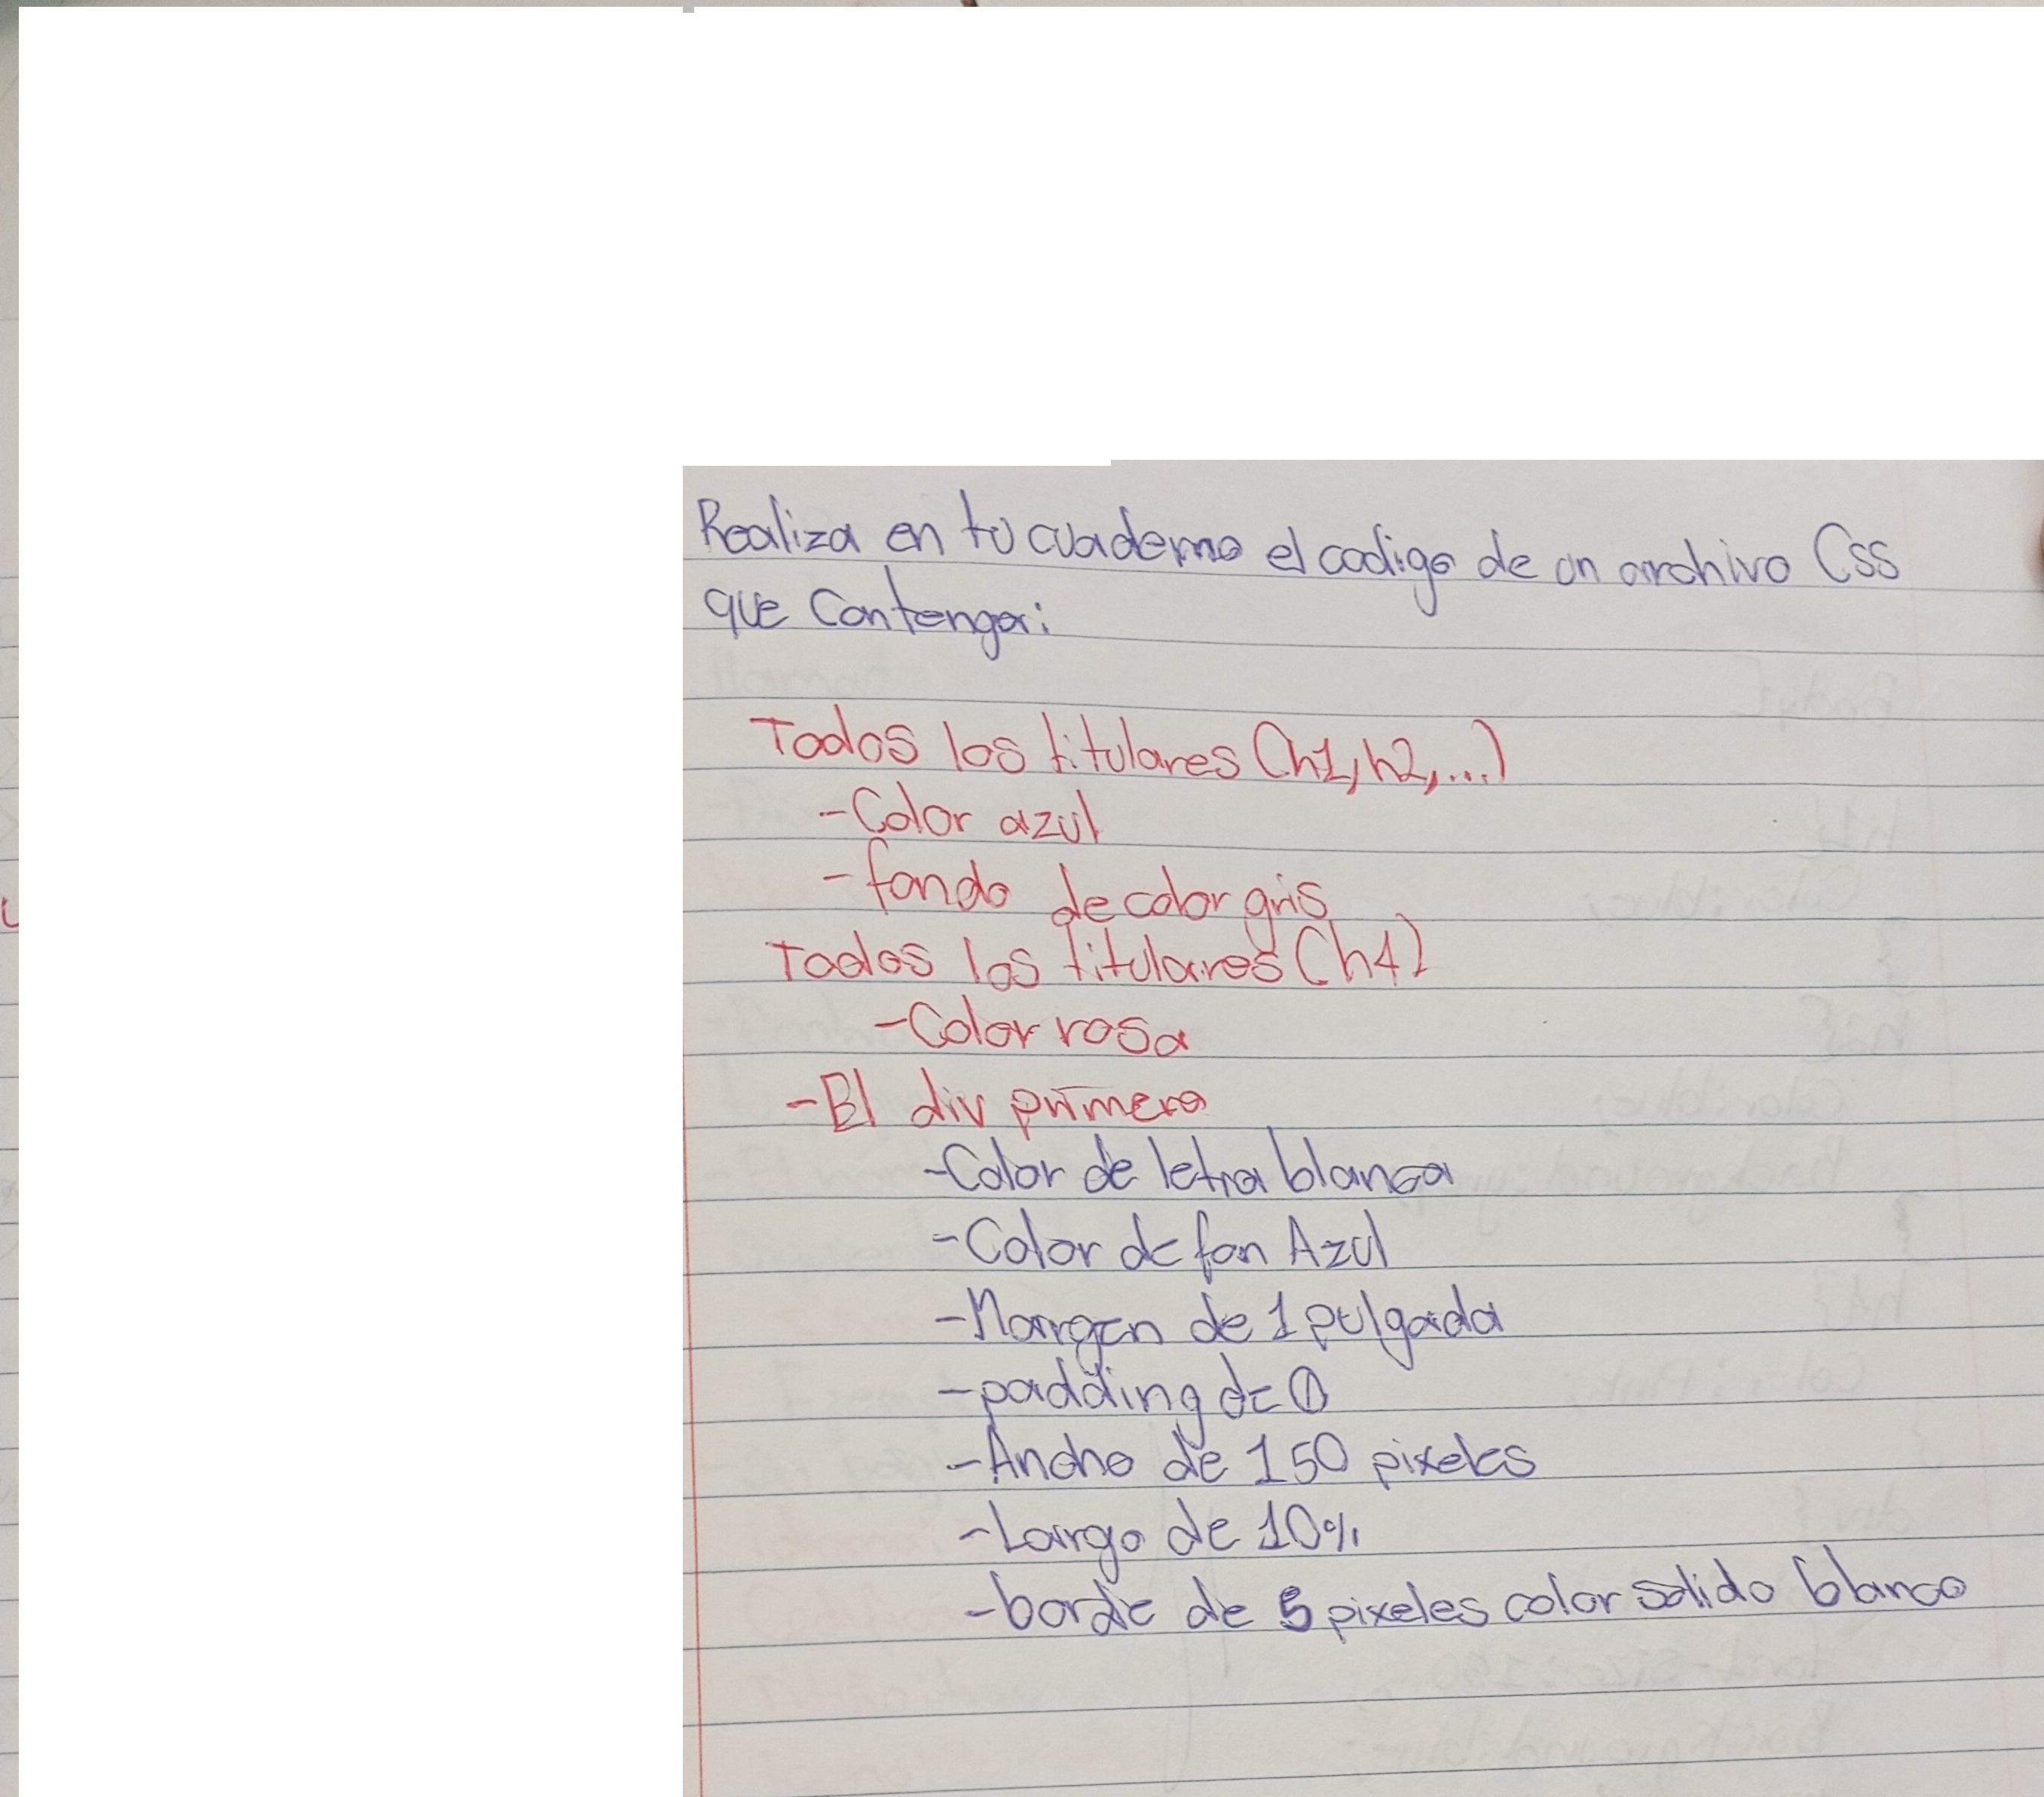 Realiza en tu cuaderno el codigo de un archivo Css
que Contenga:
Todos los titulares (h1, h2, ...)
-Color azul
-fondo de color gris
Todos los titulares (h4)
-Color rosa
-El div primero
-Color de letra blanca
-Color de fon Azul
-Margen de 1 pulgada
-padding de 0
-Ancho de 150 pixeles
-Largo de 10%
-borde de 5 pixeles color solido blanco